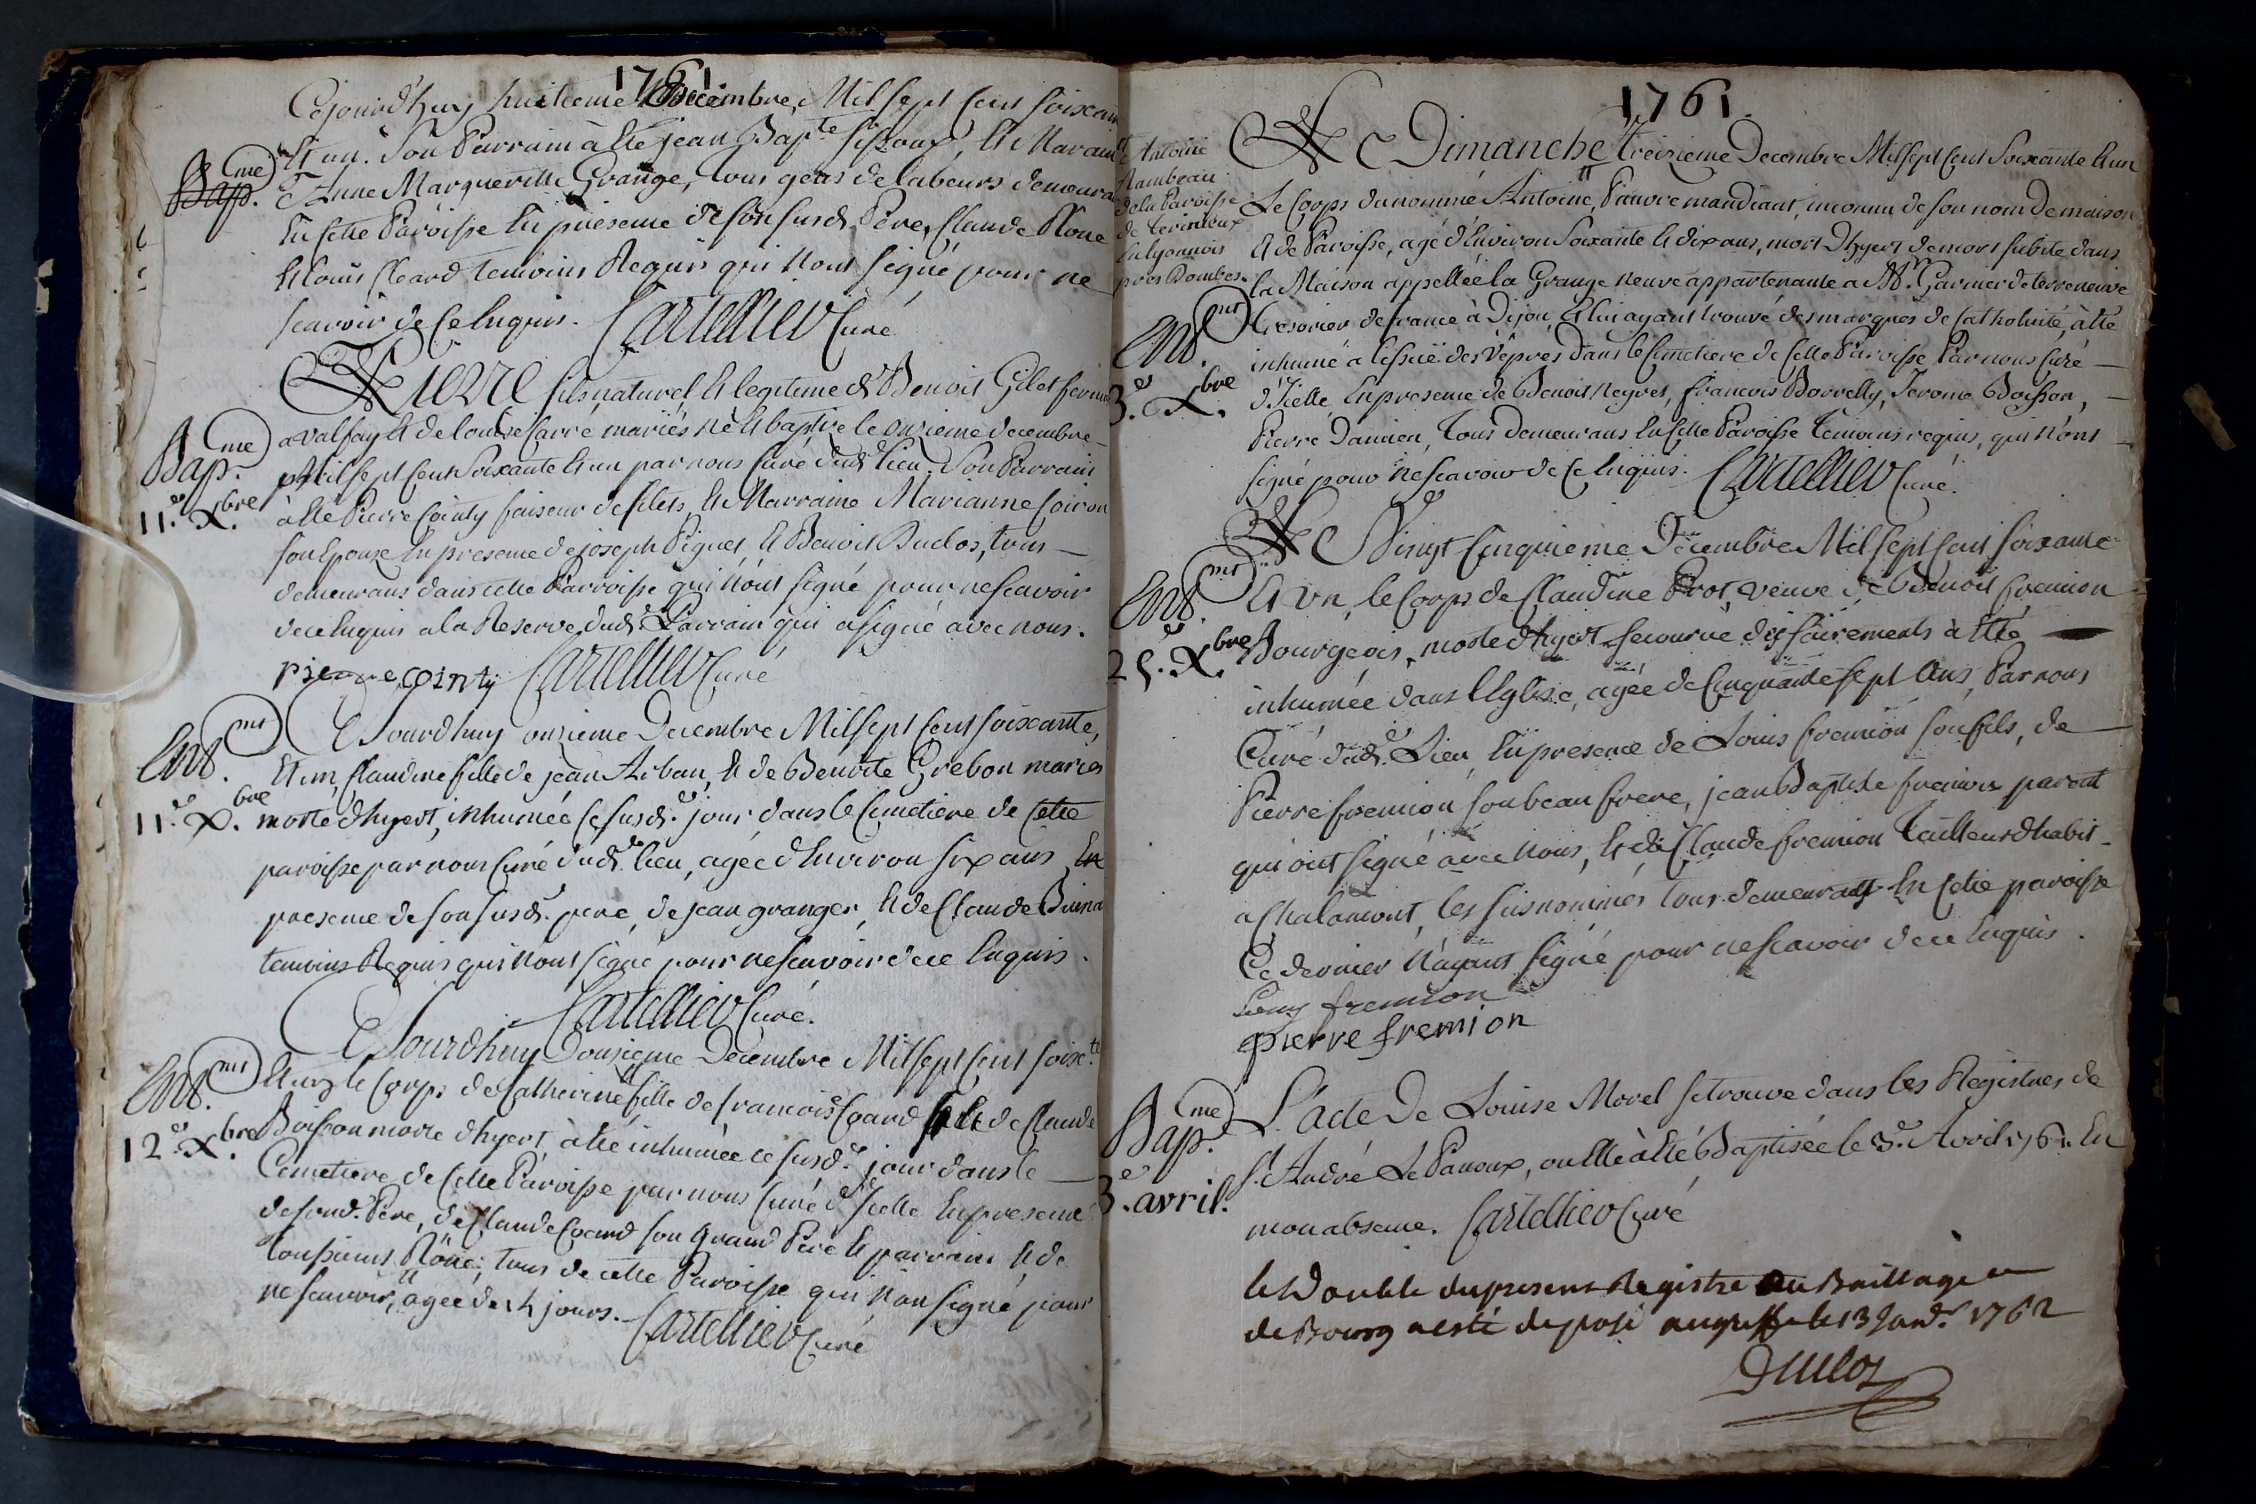 1761
Cejourd'huy huitieme Decembre, Mil sept cent soixan
et un. Son Parrain à eté jean Bap.te, et Maraine
Bap.me
Anne Margueritte Grange, tous gens de labeurs demeura
en cette Paroisse en presence de son susd. Pere, Claude Rône
et Louis Cleard temoins Requis qui n'ont signé pour ne
scavoir de ce enquis. Cartellier Curé
Pierre fils naturel et legitime de Benoit Gilet fermi
Bap.me
a Valfay et de Louise Carre mariés né et baptisé le onzieme decembre
11.e X.bre
Mil sept cent Soixante et un par nous Curé dud. lieu. Son Parrain
à eté Pierre Cointy faiseur de filets, et Marraine Marianne Coiron
son Epouse en presence de joseph Piquet et Benoit Buclos, tous
demeurans dans cette Parroisse qui n'ont signé pour ne scavoir
de ce enquis a la Reserve dud. Parrain qui a signé avec nous.
pierre cointy Cartellier Curé
Cejourdhuy onzieme Decembre Mil sept cent soixante,
Ent.mt
et un, Claudine fille de jean Arban, et de Benoite Grebon mariés
11.e X.bre
morte d'hyert, inhumée ce susd. jour dans le Cimetiere de cette
paroisse par nous Curé dud. lieu, agée d'environ six ans, En
presence de son susd. pere, de jean granger, et de Claude
temoins Requis qui n'ont signé pour ne scavoir de ce enquis.
Cartellier Curé.
Cejourdhuy Douzieme Decembre Mil sept cent soix.te
Ent.mt
et un le Corps de Catherine fille de Francois Coard et de Claude
12.e X.bre
Boisson morte d'hyert, à eté inhumée ce susd. jour dans le
Cimetiere de cette Paroisse par nous Curé d'icelle en presence
de son d. Pere, de Claude Coard son grand Pere et parrain et de
Toussaint Rône, tous de cette Paroisse qui n'on signé pour
ne scavoir, agée de 4 jours. Cartellier Curé
1761.
Le Dimanche treizieme Decembre Mil sept cent Soixante et un
Antoine
Rambeau
de la Paroisse
de
en Lyonnois
près Dombes.
Le Corps du nommé Antoine, Pauvre mandiant, inconnu de son nom de maison
et de Paroisse, agé d'environ Soixante et dix ans, mort d'hyert de mort subite dans
la Maison appellée la Grange neuve appartenante a M.r Garnier de terreneuve
Ent.mt
tresorier de france à Dijon, et lui ayant trouvé des marques de Catholicité, à eté
13.e X.bre
inhumé a l'issuë des Vêpres dans le Cimetiere de cette Paroisse Par nous Curé
d'icelle, en presence de Benoit Neyret, francois Borrelly, Jerome Boisson,
Pierre Damien, Tous Demeurans en cette Paroisse Temoins requis, qui n'ont
signé pour ne scavoir de ce enquis. Cartellier Curé.
Le Vingt Cinquieme Decembre Mil sept cent soixante
Ent.mt
et un, le Corps de Claudine Prost, veuve de Benoit fremion
25.e X.bre
Bourgeois, morte d'hyert secourue des sacrements à eté
inhumée dans l'Eglise, agée de Cinquante sept ans, Par nous
Curé dud. Lieu, en presence de Louis fremion son fils, de
Pierre fremion son beau frere, jean Baptiste fremion parent
qui ont signé avec nous, et de Claude fremion Tailleur d'habit
a Chalamont, les susnommés tous demeurants en cette paroisse
Ce dernier n'ayant signé pour ne scavoir de ce enquis.
Louis fremion
pierre fremion
Bap.me
L'acte de Louise Morel se trouve dans les Registres de
3.e avril.
S.t André Le Panoux, ou elle à eté Baptisée le 3.e Avril 1761. En
mon absence. Cartellier Curé
le Double du present Registre du Baillage
de Bourg a esté deposé au greffe le 13 Janv.r 1762
Duclos